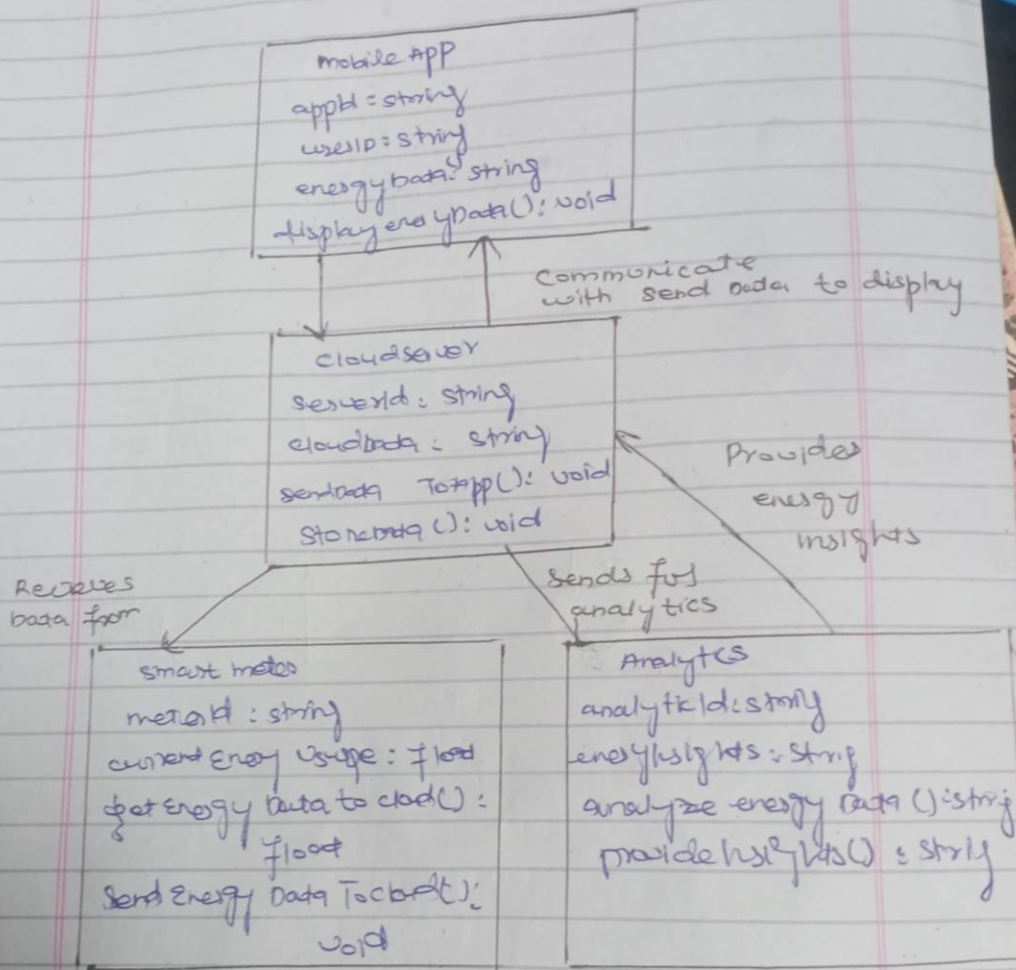 mobile App
appId = string
userID = string
energyData: string
displayeneryData(): void
Communicate
with send Data to display
cloudserver
serverId: string
cloudData: string
sendData ToApp(): void
StoreData(): void
Provides
energy
insights
Receives
Data from
sends for
analytics
smart meter
meterId : string
current Enery Usage : float
get Energy Data to cloud() :
float
Send Energy Data To cloud():
void
Analytcs
analyticId: string
eneryInsights : String
analyze energy Data () : string
provide Insights() : String